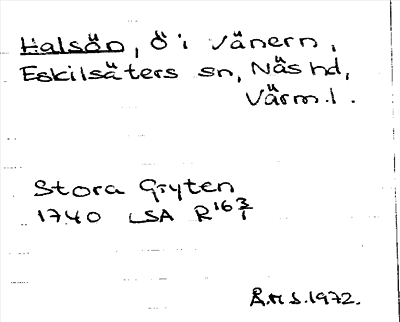 Halsön, Ö i Vänern,
Eskilsäters sn, Näs hd,
Värm.l.
Stora Gryten
1740 LSA R16 3/1
Å.H.S. 1972.